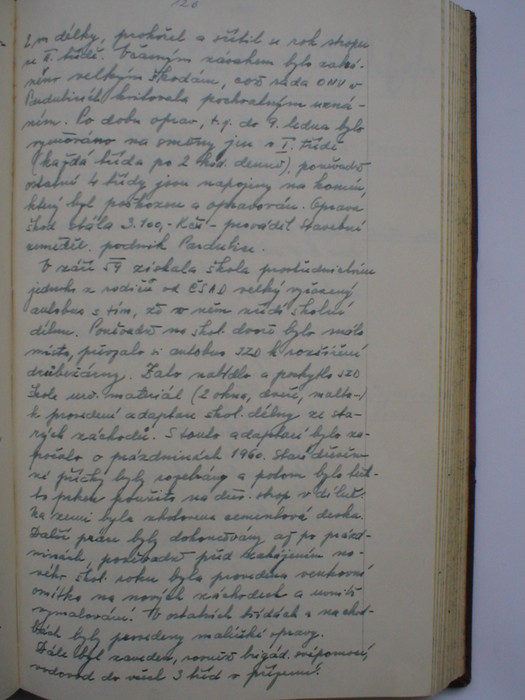 120
1 m délky, prohořel a zřítil se rok stropu
ve I. třídě. Včasným zásahem bylo zabrá-
něno velkým škodám, což rada ONV v
Pardubicích kvitovala pochvalným uzná-
ním. Po dobu oprav, t.j. do 9. ledna bylo
vyučováno na směny jen v I. třídě
(každá třída po 2 hod. denně), poněvadž
ostatní 4 třídy jsou napojeny na komín,
který byl poškozen a opravován. Oprava
škod stála 3.100,- Kčs - prováděl Stavební
zeměděl. podnik Pardubice.
V září 59 získala škola prostřednictvím
jednoho z rodičů od ČSAD velký vyřazený
autobus s tím, že v něm zřídí školní
dílnu. Poněvadž na škol. dvoře bylo málo
místa, převzalo si autobus JZD k rozšíření
drůbežárny. Zato nabídlo a poskytlo JZD
škole materiál (2 okna, dveře, malta)
k provedení adaptace škol. dílny ze sta-
rých záchodů. S touto adaptací bylo za-
počato o prázdninách 1960. Staré dřevě-
né příčky byly rozebrány a potom bylo
prken použito na strop v dílně.
Na zemi byla zhotovena cementová dlažba.
Další práce byly dokončovány až po prázd-
ninách, poněvadž před zahájením no-
vého škol. roku byla provedena venkovní
omítka na nových záchodech a uvnitř
vymalování. V ostatních třídách a na chod-
bách byly provedeny malířské opravy.
Dále byl zaveden, rovněž brigád. svépomocí,
vodovod do všech 3 tříd v přízemí.